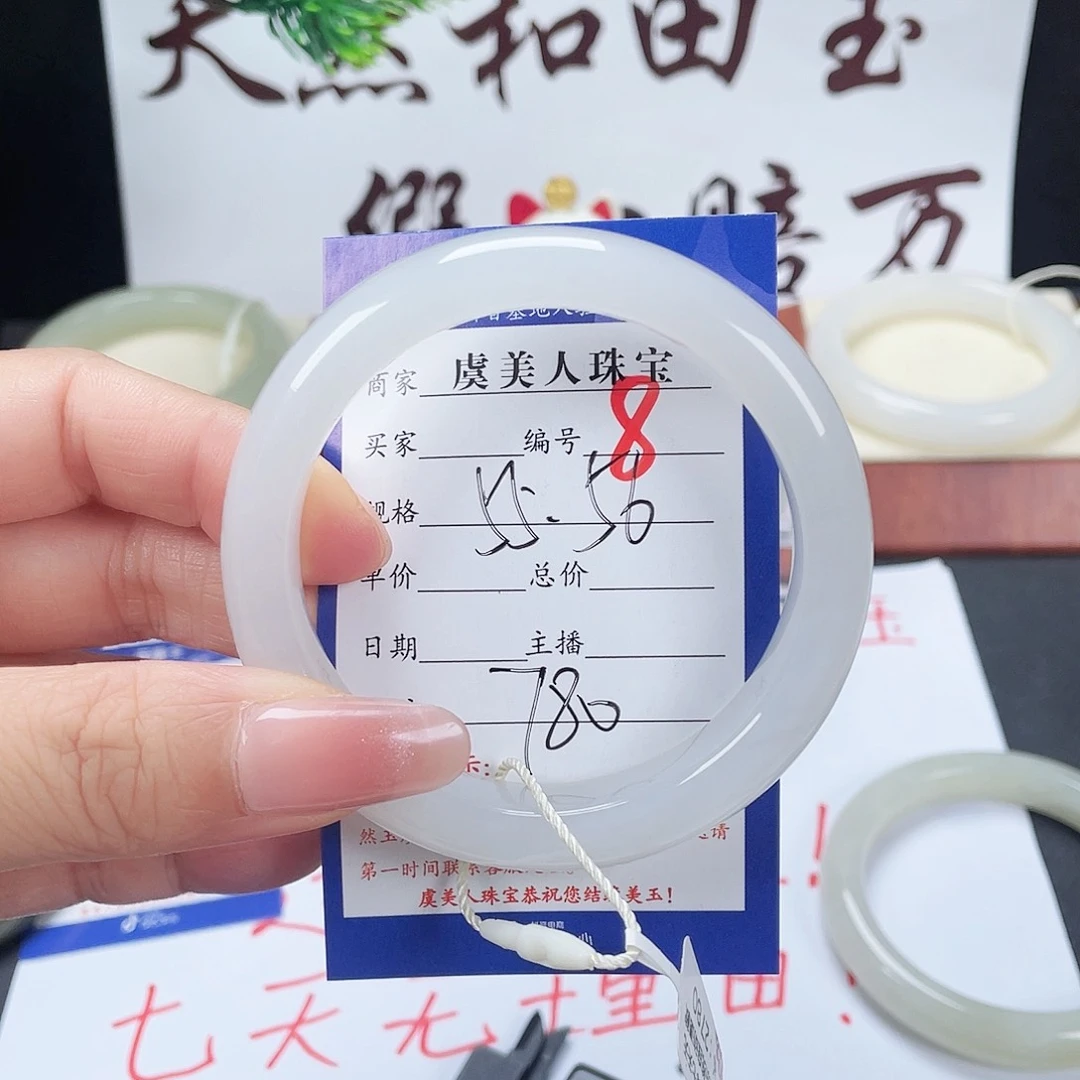 天然和田玉
假一赔万
商家 虞美人珠宝
买家 编号 8
规格 55-56
单价 总价
日期 主播
780
示:
第一时间联系客服
虞美人珠宝恭祝您结缘美玉!
七天无理由!